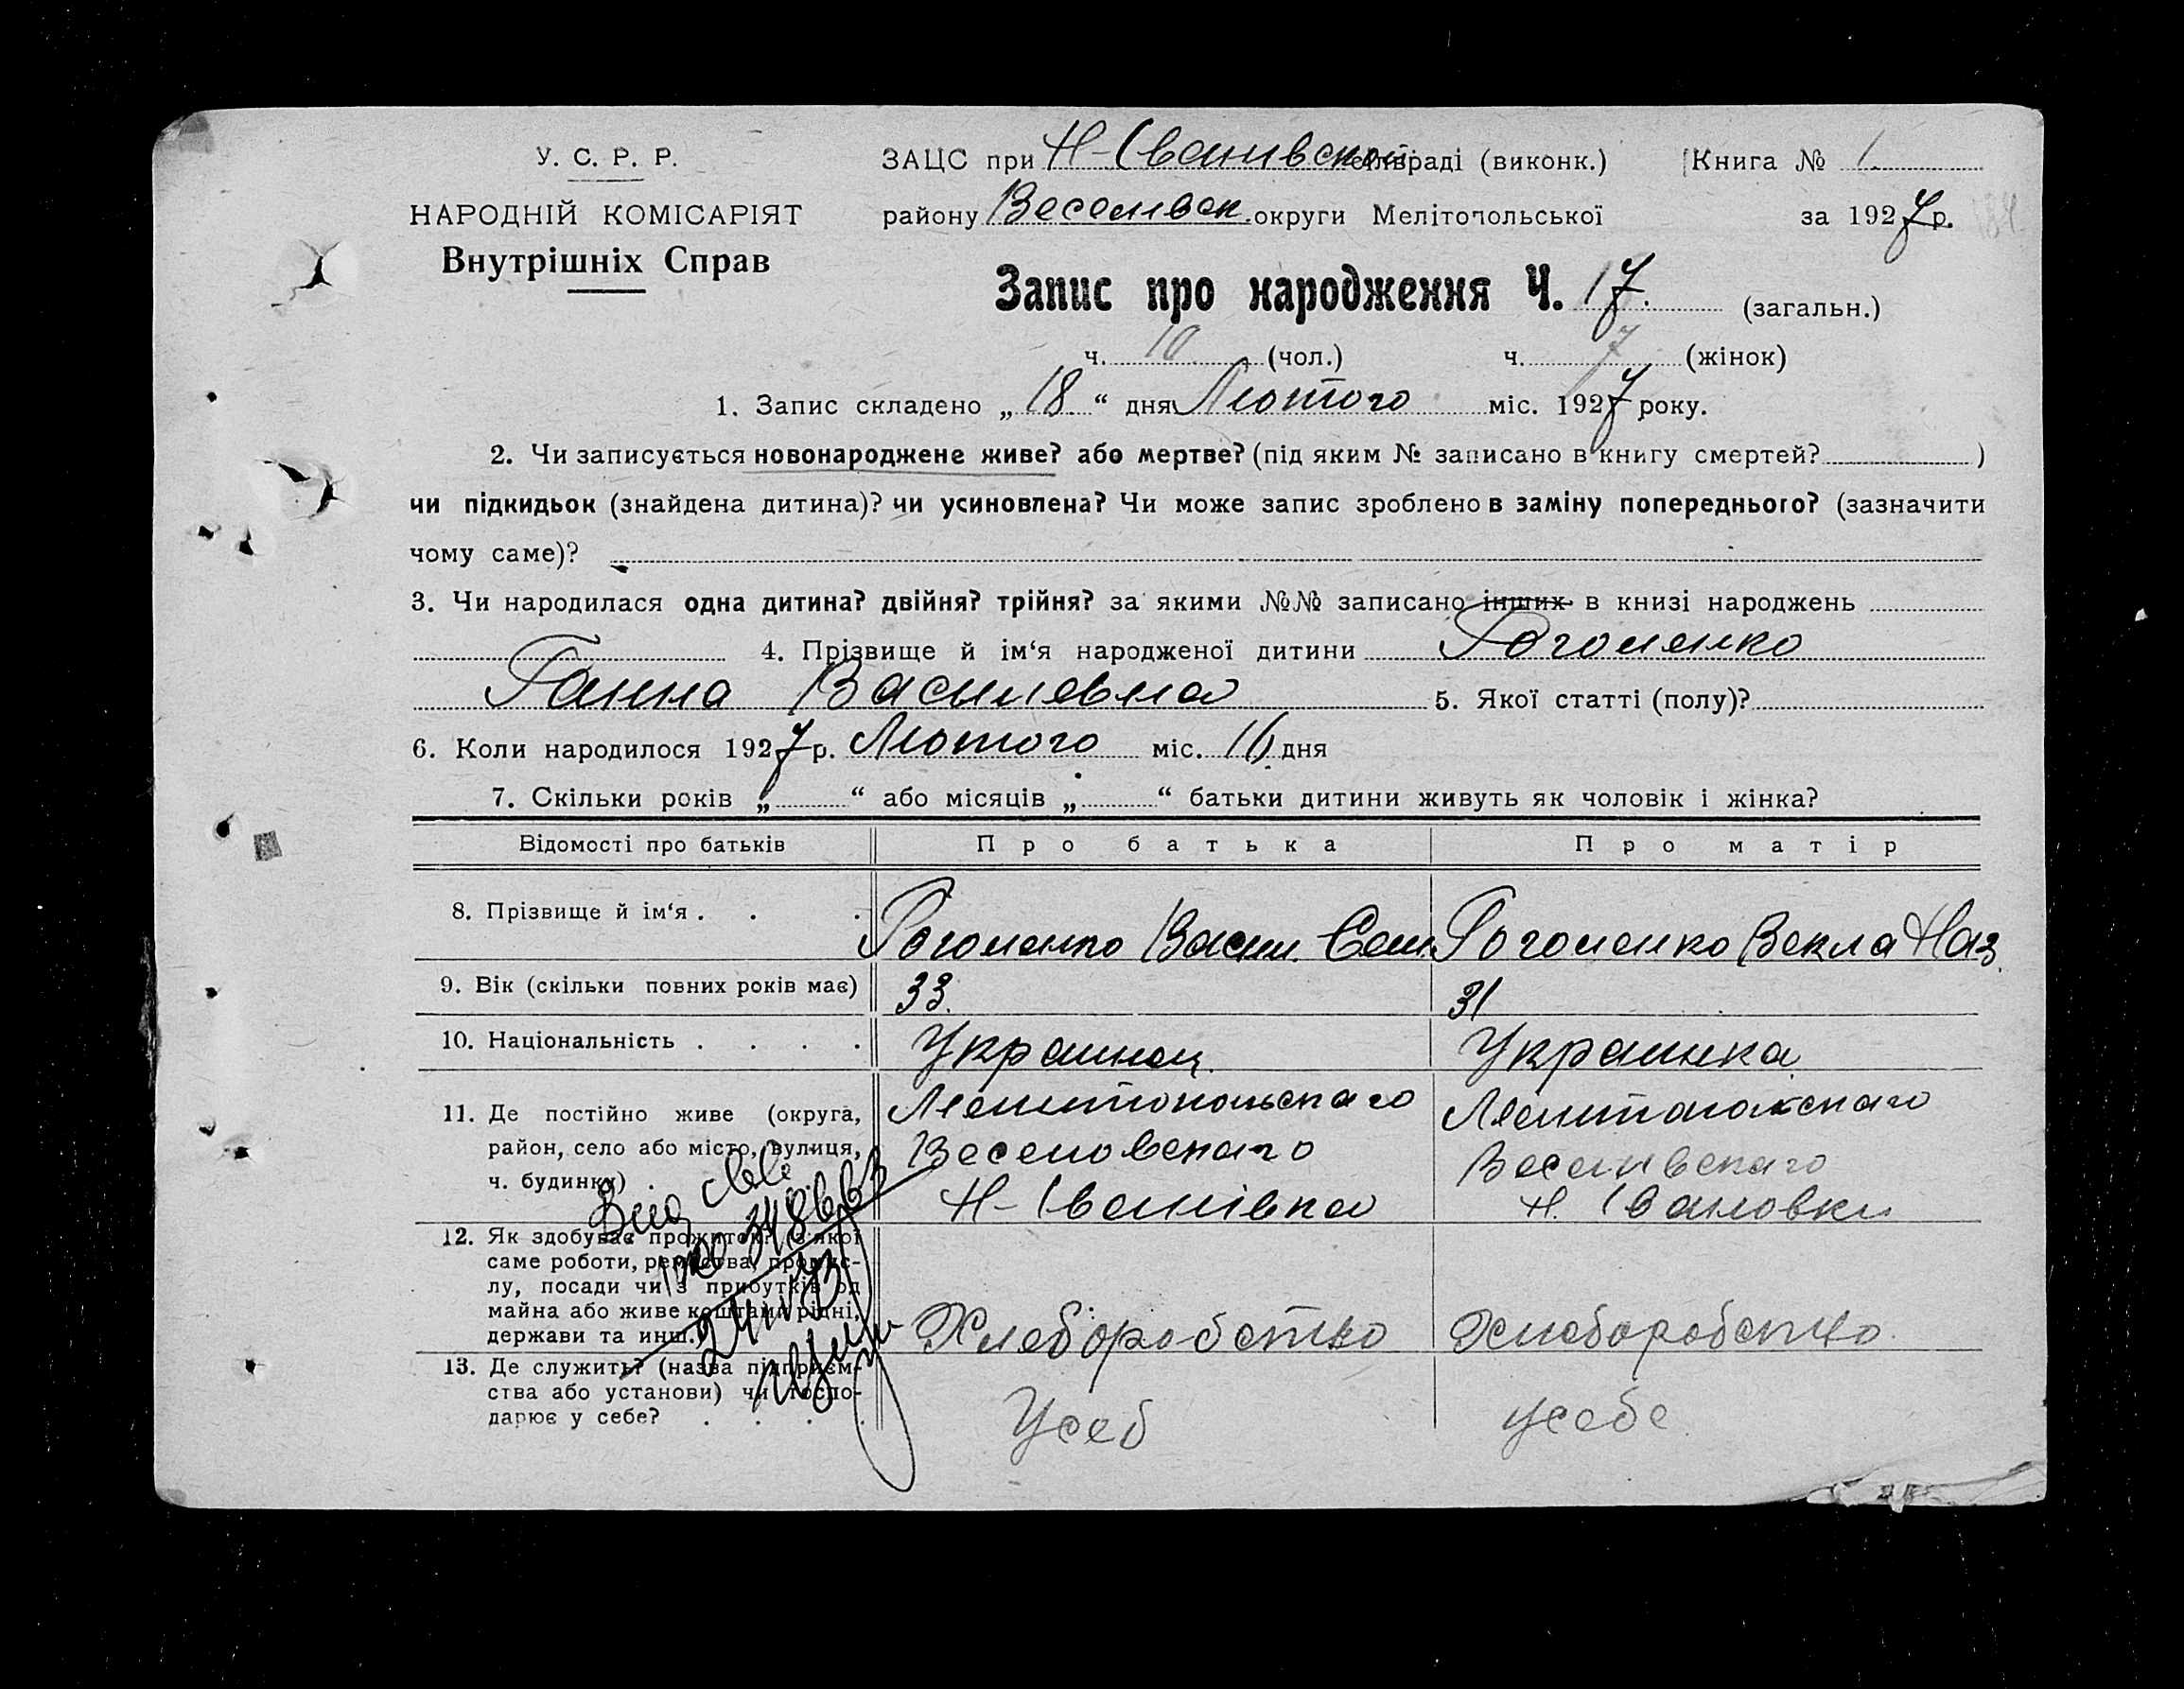 У. С. Р. Р.
НАРОДНІЙ КОМІСАРІЯТ
Внутрішніх Справ
ЗАЦС при Н-Іванивской сельраді (виконк.) Книга № 1.
району Веселивск. округи Мелітопольської за 1927 р.
Запис про народження Ч. 17. (загальн.)
ч. 10 (чол.) ч. 7 (жінок)
1. Запис складено „ 18. “ дня Лютого міс. 1927 року.
2. Чи записується новонароджене живе? або мертве? (під яким № записано в книгу смертей? )
чи підкидьок (знайдена дитина)? чи усиновлена? Чи може запис зроблено в заміну попереднього? (зазначити
чому саме)?
3. Чи народилася одна дитина? двійня? трійня? за якими №№ записано інших в книзі народжень
4. Прізвище й ім‘я народженої дитини Роголенко
Ганна Василевна 5. Якої статті (полу)?
6. Коли народилося 1927 р. Лютого міс. 16 дня
7. Скільки років „ “ або місяців „ “ батьки дитини живуть як чоловік і жінка?
Відомості про батьків Про батька Про матір
8. Прізвище й ім‘я . . . Роголенко Васил. Сем. Роголенко Векла Наз.
9. Вік (скільки повних років має) 33. 31
10. Національність . . . . Украинец. Украинка
11. Де постійно живе (округа, Мелитопольскаго Мелитопольскаго
район, село або місто, вулиця, Веселовскаго Веселивскаго
ч. будинку) . Н-Іванівка Н. Івановки
12. Як здобуває прожиток? (з якої
саме роботи, ремества, промис-
лу, посади чи з прибутків од
майна або живе коштами рідні,
держави та инш.) Хлеборобство Хлеборобство.
13. Де служить? (назва підприєм-
ства або установи) чи госпо-
дарює у себе? . . . . Усеб усебе